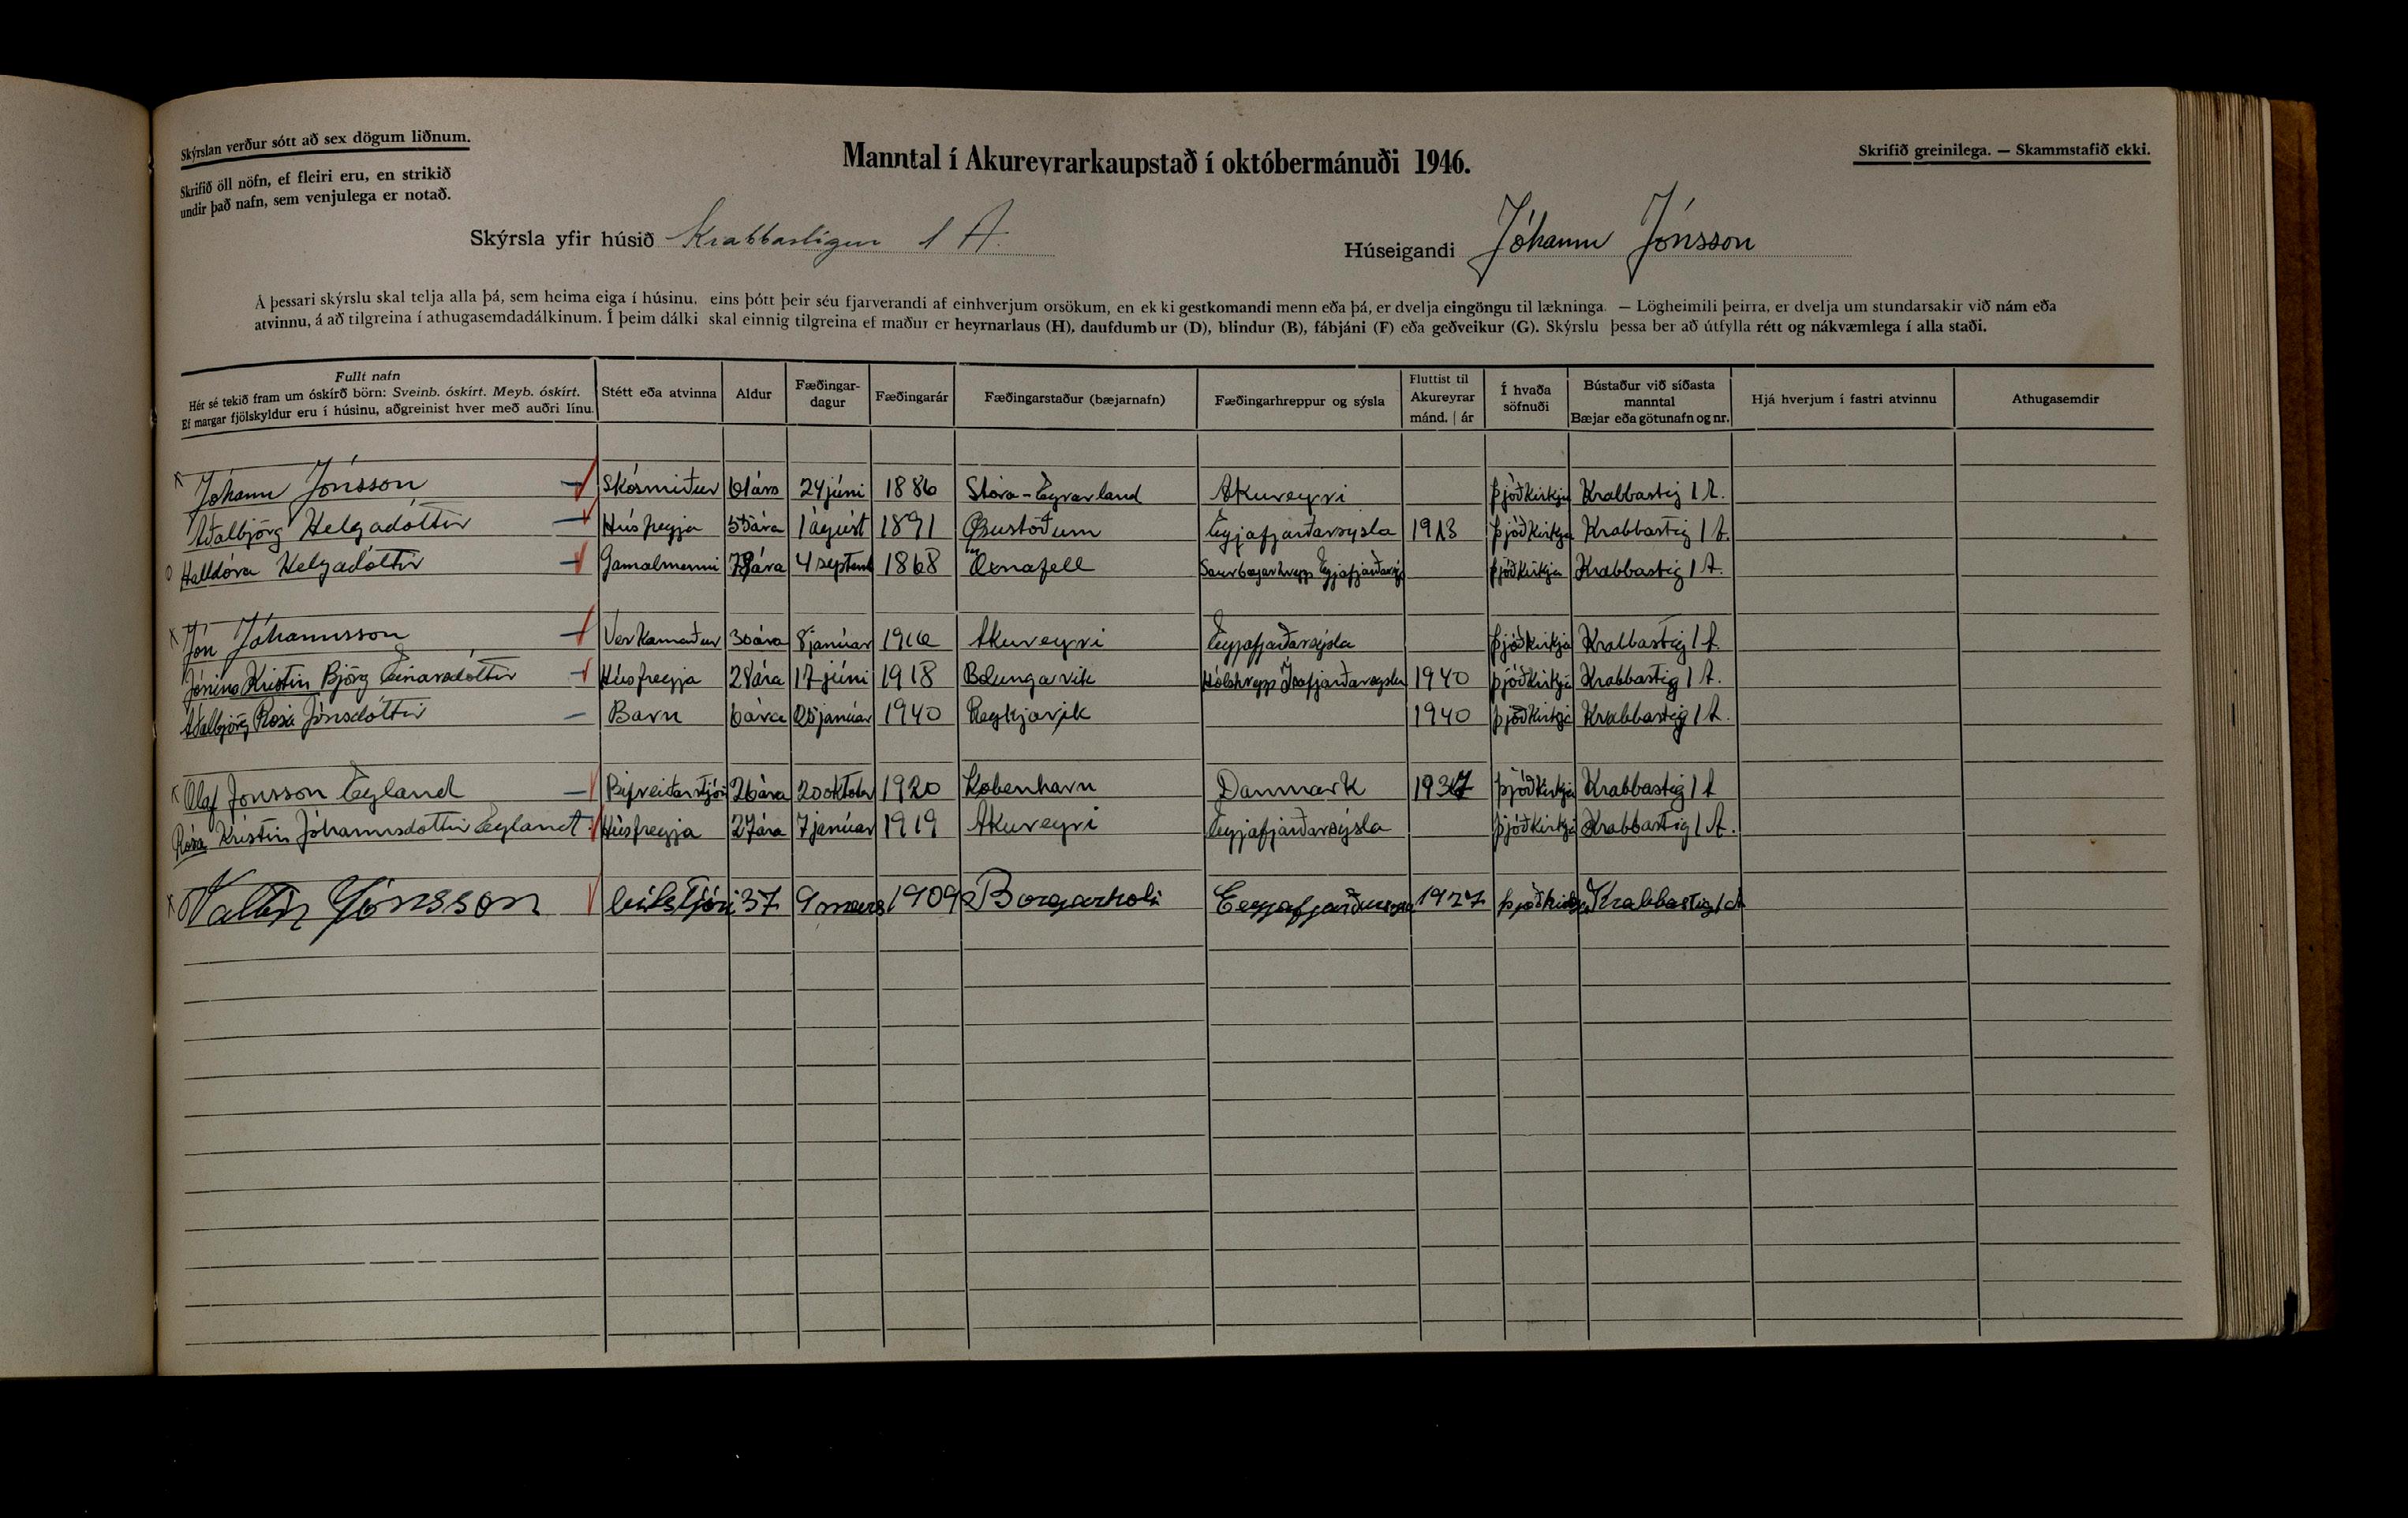 Skýrslan verður sótt að sex dögum liðnum.
Skrifið öll nöfn, ef fleiri eru, en strikið
undir það nafn, sem venjulega er notað.
Manntal í Akureyrarkaupstað í októbermánuði 1946.
Skrifið greinilega. — Skammstafið ekki.
Skýrsla yfir húsið Krabbastígur 1 A.
Húseigandi Jóhann Jónsson
Á þessari skýrslu skal telja alla þá, sem heima eiga í húsinu, eins þótt þeir séu fjarverandi af einhverjum orsökum, en ekki gestkomandi menn eða þá, er dvelja eingöngu til lækninga. — Lögheimili þeirra, er dvelja um stundarsakir við nám eða
atvinnu, á að tilgreina í athugasemdadálkinum. Í þeim dálki skal einnig tilgreina ef maður er heyrnarlaus (H), daufdumbur (D), blindur (B), fábjáni (F) eða geðveikur (G). Skýrslu þessa ber að útfylla rétt og nákvæmlega í alla staði.
Fullt nafn
Hér sé tekið fram um óskírð börn: Sveinb. óskírt. Meyb. óskírt.
Ef margar fjölskyldur eru í húsinu, aðgreinist hver með auðri línu.
Stétt eða atvinna
Aldur
Fæðingar-
dagur
Fæðingarár
Fæðingarstaður (bæjarnafn)
Fæðingarhreppur og sýsla
Fluttist til
Akureyrar
mánd. | ár
Í hvaða
söfnuði
Bústaður við síðasta
manntal
Bæjar eða götunafn og nr.
Hjá hverjum í fastri atvinnu
Athugasemdir
Jóhann Jónsson Skósmiður 61 árs 24 júni 1886 Stóra-Eyrarland Akureyri Þjóðkirkju Krabbastig 1 A.
Aðalbjörg Helgadóttir Húsfreyja 55 ára 1 ágúst 1891 Eyjafjarðarsysla 1913 Þjóðkirkja Krabbastig 1 A.
Halldóra Helgadóttir Gamalmenni 78 ára 4 septemb 1868 Saurbæjarhrepp Eyjafjarðars Þjóðkirkja Krabbastig 1 A.
Jón Jóhannsson Verkamaður 30 ára 8 janúar 1916 Akureyri Eyjafjarðarsýsla Þjóðkirkja Krabbastig 1 A.
Jónína Kristín Björg Einarsdóttir Húsfreyja 28 ára 17 júni 1918 Bolungavik Hólshrepp Ísafjarðarsyslu 1940 Þjóðkirkja Krabbastig 1 A.
Aðalbjörg Rósa Jónsdóttir Barn 6 ára 25 janúar 1940 Reykjavik 1940 Þjóðkirkja Krabbastig 1 A.
Olaf Jonsson Eyland Bifreiðarstjóri 26 ára 20 oktober 1920 Kobenhavn Danmark 1937 Þjóðkirkja Krabbastig 1 A
Rósa Kristín Jóhannsdóttir Eyland Húsfreyja 27 ára 7 janúar 1919 Akureyri Eyjafjarðarsýsla Þjóðkirkja Krabbastig 1 A.
Jónsson bílstjóri 37 9 mars 1909 Borgarhóli Eyjafjarðarsýs 1927 Þjóðkirkju Krabbastig 1 A